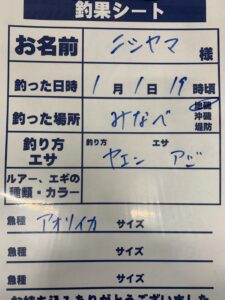 釣果シート
お名前 ニシヤマ 様
釣った日時 1月1日19時頃
釣った場所 みなべ 地磯 沖磯 堤防
釣り方 エサ 釣り方 ヤエン エサ アジ
ルアー、エギの種類・カラー
魚種 アオリイカ サイズ
魚種 サイズ
魚種 サイズ
お持ち込みありがとうございました